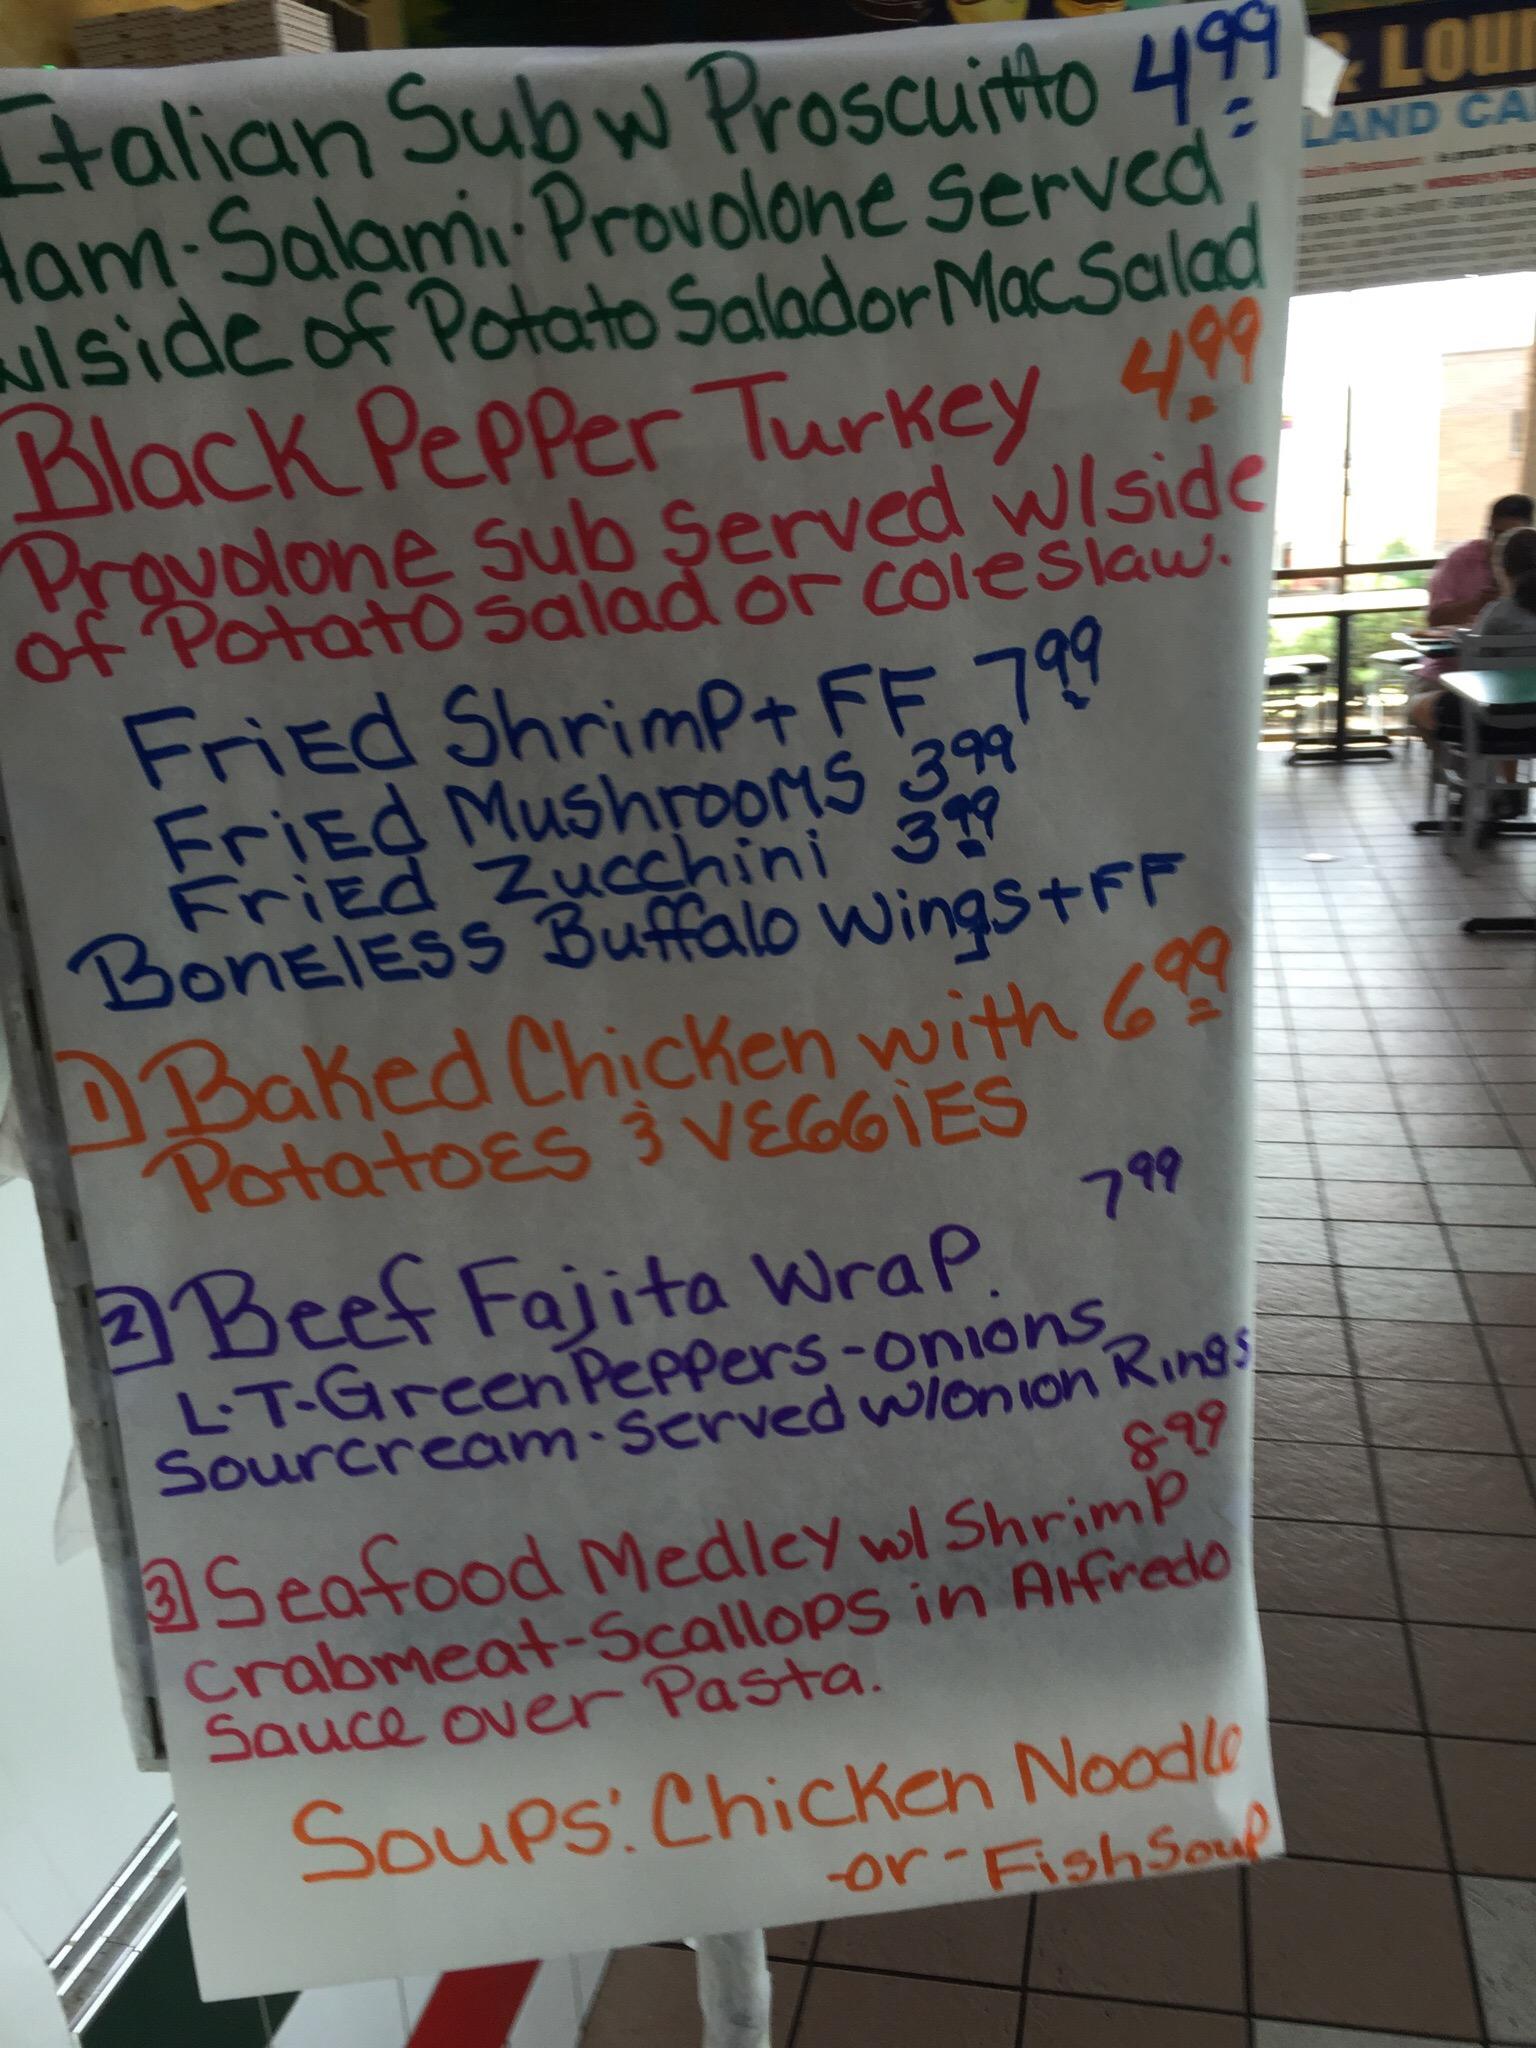 Italian Sub w Proscuitto 4.99
Ham - Salami - Provolone served
w/side of Potato Salad or Mac Salad
Black Pepper Turkey 4.99
Provolone sub served w/side
of Potato salad or coleslaw.
Fried Shrimp + FF 7.99
Fried Mushrooms 3.99
Fried Zucchini 3.99
Boneless Buffalo Wings + FF
1) Baked Chicken with 6.99
Potatoes & Veggies
7.99
2) Beef Fajita Wrap.
L-T-Green Peppers - onions
sourcream - served w/onion Rings
8.99
3) Seafood Medley w/ Shrimp
crabmeat - Scallops in Alfredo
Sauce over Pasta.
Soups: Chicken Noodle
-or- Fish Soup
& LOUI
LAND CA